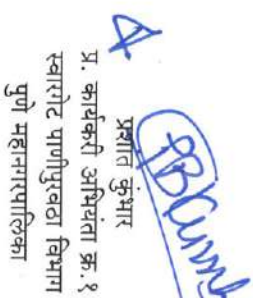 प्रशांत कुंभार
प्र. कार्यकारी अभियंता क्र.१
स्वारगेट पाणीपुरवठा विभाग
पुणे महानगरपालिका